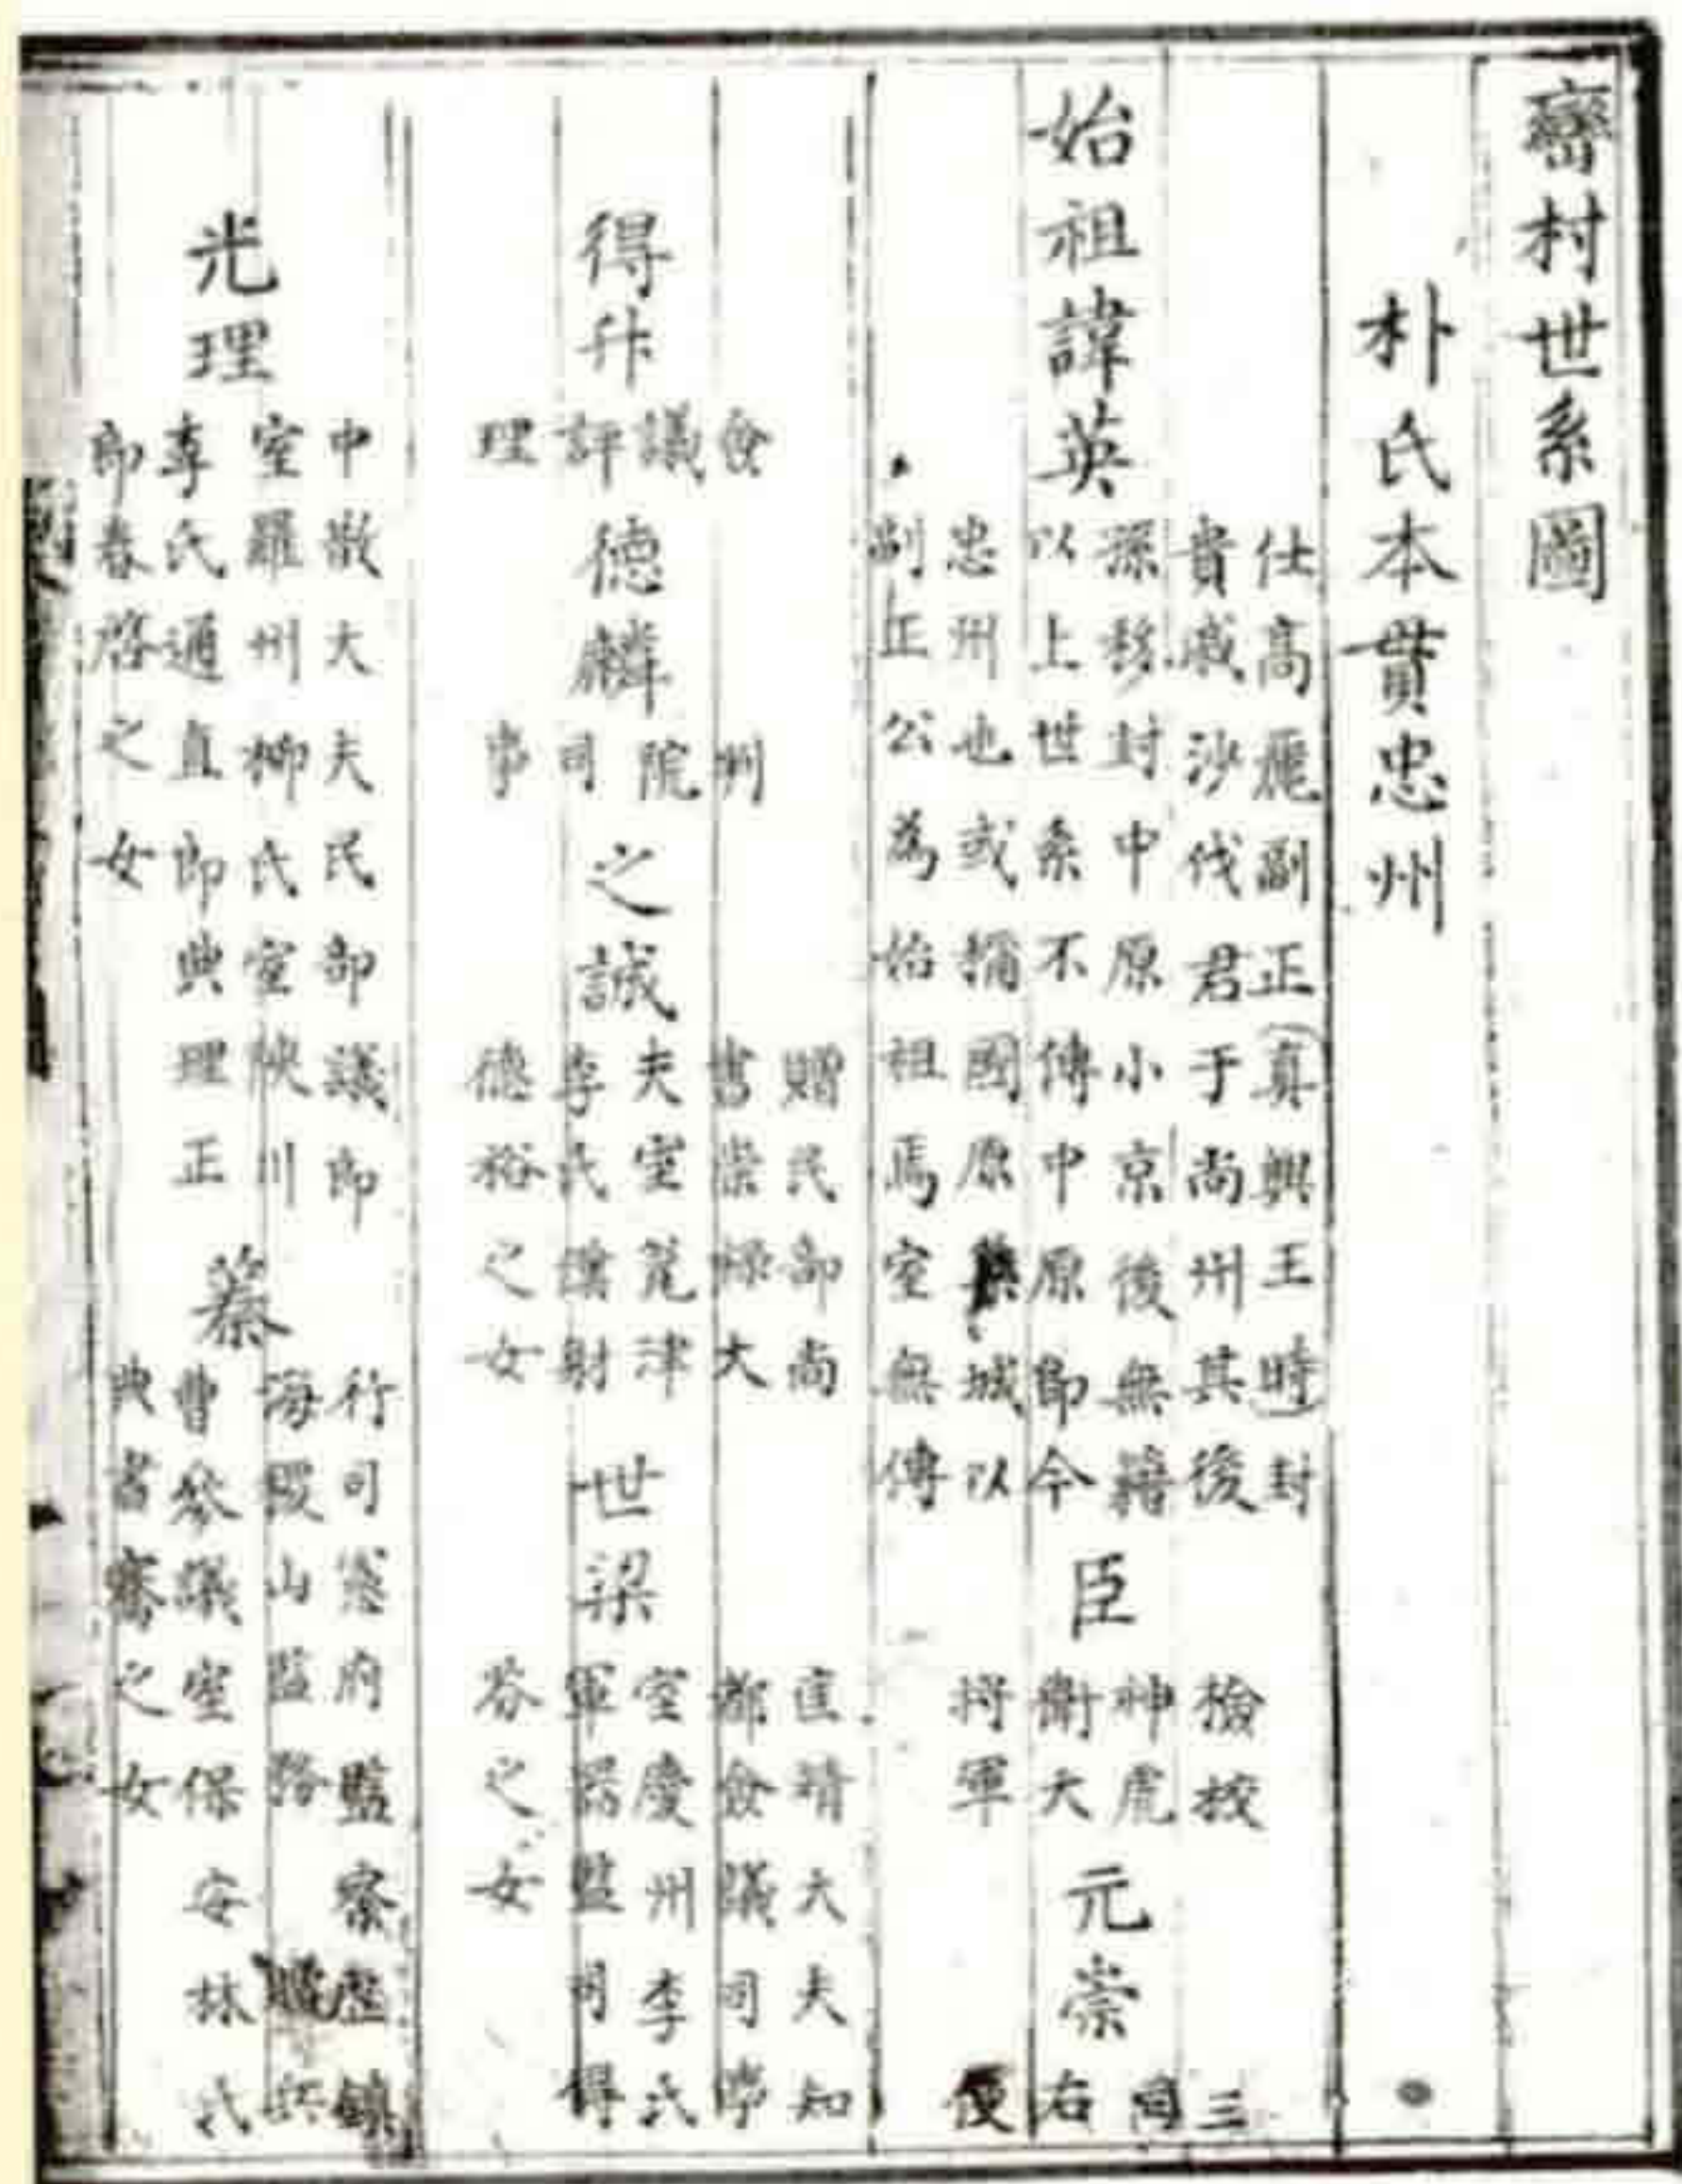 㝈村世系圖
朴氏本貫忠州
始祖諱英
仕高麗副正(真興王時)封
貴戚沙伐君于尚州其後
孫移封中原小京後無籍
以上世系不傳中原郎今
忠州也或稱國原城以
副正公為始祖焉室無傳
臣
檢校
神虎
衛大
將軍
元崇
三
司
右
使
得升
僉
議
評
理
德麟
州
院
司
事
之誠
贈民部尚
書崇祿大
夫室
津
李氏僕射
德裕之女
世梁
匡靖大夫知
都僉議司事
室慶州李氏
軍器監
得
芬之女
光理
中散大夫民部議郎
室羅州柳氏室陜川
李氏通直郎典理正
郎春啓之女
蓁
行司憲府監察
鎮
海
山監務
曹參議室保安林氏
典書騫之女